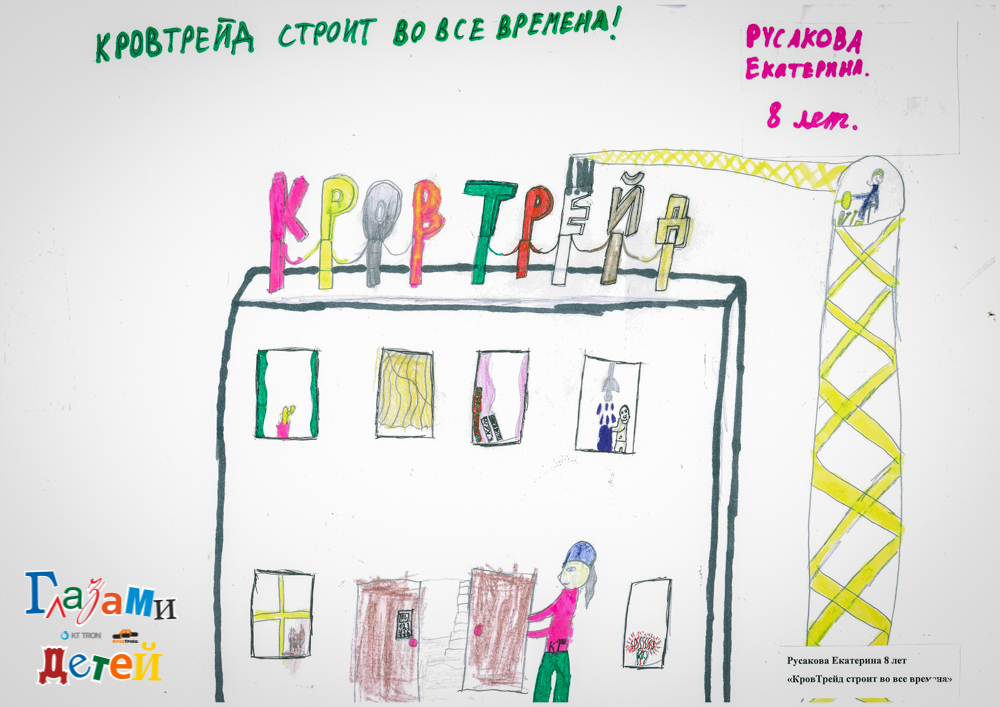 КРОВТРЕЙД СТРОИТ ВО ВСЕ ВРЕМЕНА!
РУСАКОВА
ЕКАТЕРИНА.
8 лет.
КРОВ ТРЕЙД
КР
Глазами
KT TRON
Детей
Русакова Екатерина 8 лет
«КровТрейд строит во все времена»